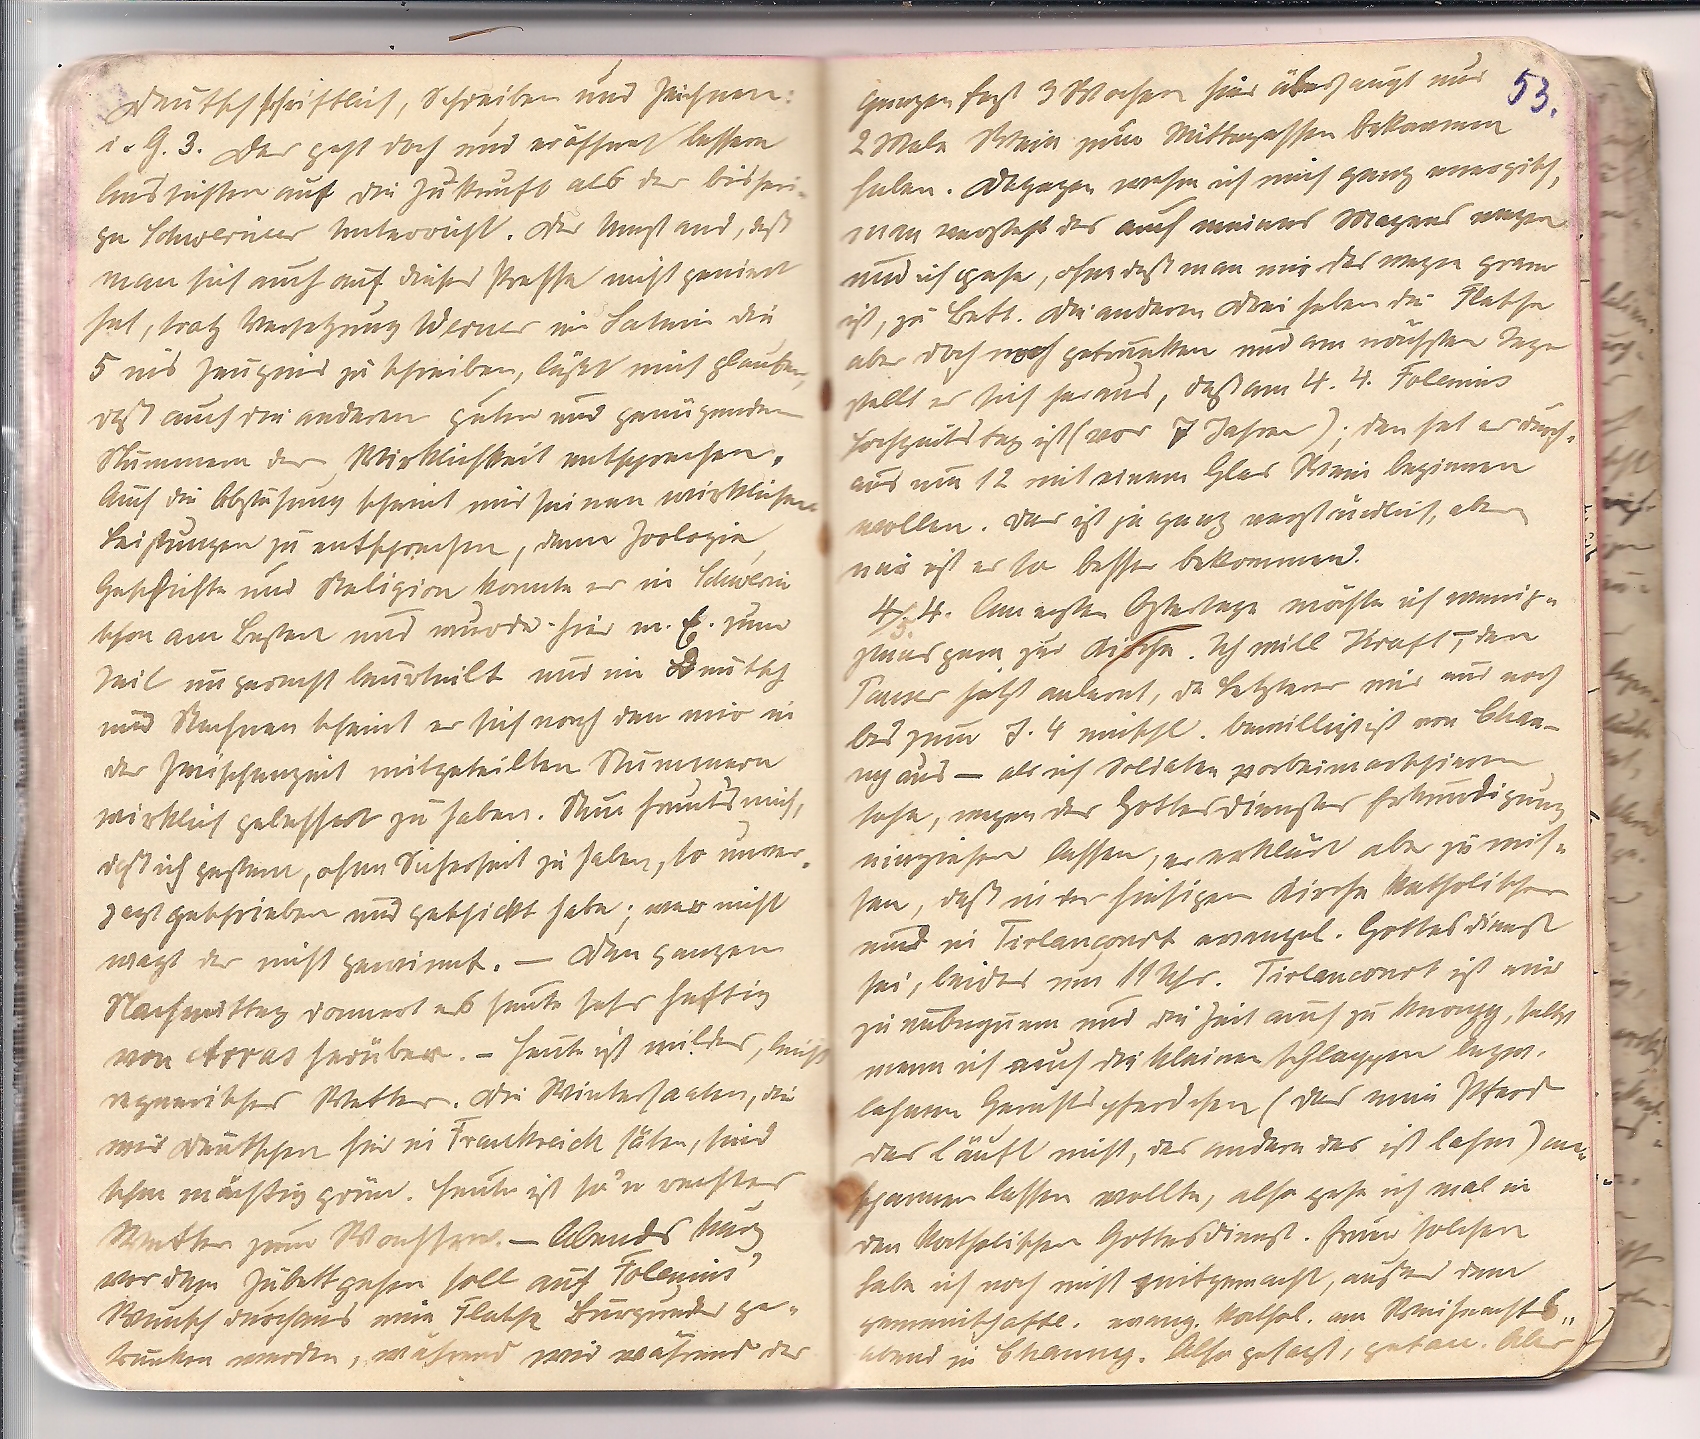 Deutsch schriftlich, Schreiben und Zeichnen:
i. G. 3. Das geht doch und eröffnet bessere
Aussichten auf die Zukunft als der bisheri-
ge Schweriner Unterricht. Der Umstand, daß
man sich auch auf dieser Presse nicht geniert
hat, trotz Versetzung Werner im Latein die
5 ins Zeugnis zu schreiben, läßt mich glauben,
daß auch die anderen guten und genügenden
Nummern der Wirklichkeit entsprechen.
Auch die Abstufung scheint mir seinen wirklichen
Leistungen zu entsprechen, denn Zoologie,
Geschichte und Religion konnte er in Schwerin
schon am Besten und wurde hier m. E. zum
Teil ungerecht beurteilt und im Deutsch
und Rechnen scheint er sich nach den mir in
der Zwischenzeit mitgeteilten Nummern
wirklich gebessert zu haben. Nun freut's mich,
daß ich gestern, ohne Sicherheit zu haben, so unver-
zagt geschrieben und geschickt habe; wer nicht
wagt der nicht gewinnt. — Den ganzen
Nachmittag donnert es heute sehr heftig
von Arras herüber. – Heute ist mildes, leicht
regnerisches Wetter. Die Wintersaaten, die
wir Deutschen hier in Frankreich säten, sind
schon mächtig grün. Heute ist so'n rechtes
Wetter zum Wachsen. — Abends kurz
vor dem Zubettgehen soll auf Folenius'
Wunsch durchaus eine Flasche Burgunder ge-
trunken werden, während wir während der
53.
ganzen fast 3 Wochen hier überhaupt nur
2 Male Wein zum Mittagessen bekommen
haben. Dagegen wehre ich mich ganz energisch,
man versteht das auch meines Magens wegen
und ich gehe, ohne daß man mir deswegen gram
ist, zu Bett. Die anderen Drei haben die Flasche
aber doch noch getrunken und am nächsten Tage
stellt es sich heraus, daß am 4. 4. Folenius
Hochzeitstag ist (vor 7 Jahren); den hat er durch-
aus um 12 mit einem Glas Wein beginnen
wollen. Das ist ja ganz verständlich, aber
mir ist es so besser bekommen.
4. 4. Am ersten Ostertage möchte ich wenig-
stens gern zur Kirche. Ich will Kraft, den
jetzt anlernt, da letzterer mir nur noch
bis zum 7. 4 bewilligt ist von Chau-
ny aus — als ich Soldaten vorbeimarschieren
sehe, wegen des Gottesdienstes Erkundigung
einziehen lassen, er erklärt aber zu wis-
sen, daß in der hiesigen Kirche katholischer
und in Tirlancourt evangel. Gottesdienst
sei, leider um 11 Uhr. Tirlancourt ist mir
zu unbequem und die Zeit auch zu knapp, selbst
wenn ich auch die kleinen schlappen bezw.
lahmen Gerichtspferdchen (das eine Pferd
das läuft nicht, das andere das ist lahm) an-
spannen lassen wollte, also gehe ich mal in
den katholischen Gottesdienst. Einen solchen
habe ich noch nicht mitgemacht, außer dem
gemeinschaftl. evang. kathol. am Weihnachts-
abend in Chauny. Also gesagt, getan. Aber